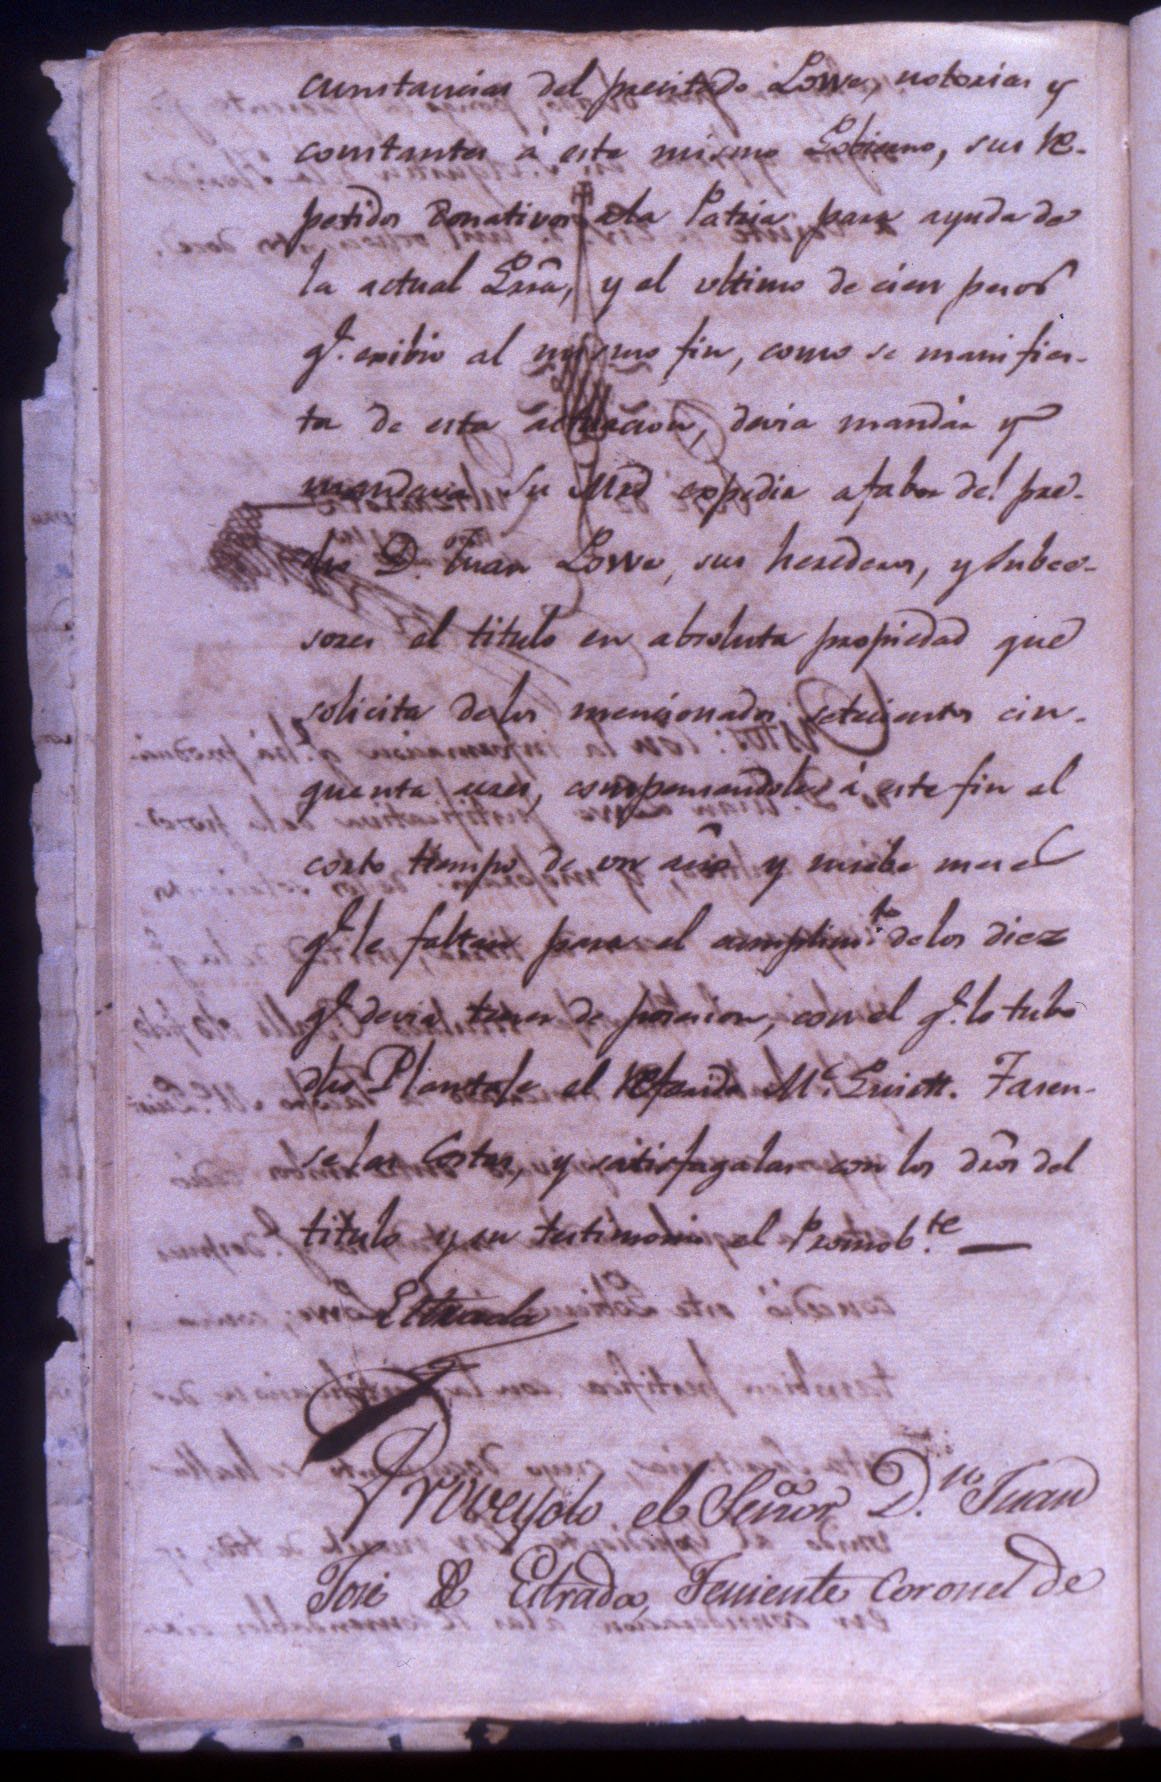 cunstancias del precitado Lowe, notorias y
constantes á este mismo Gobierno, sus re-
petidos Donativos a la Patria para ayuda de
la actual Grrã, y el ultimo de cien pesos
q.e exibio al mismo fin, como se manifies-
ta de esta actuacion, devia mandar y
mandava Su Mrd expedir a fabor del pre-
dho D.n Juan Lowe, sus herederos, y subce-
sores el titulo en absoluta propiedad que
solicita de los mencionados setecientos cin-
quenta acres, compensandoles á este fin el
corto tiempo de un año y nuebe meses
q.e le faltan para el cumplim.to de los diez
q.e devia tener de posesion, con el q.e lo tubo
dho Plantage el referido M.c Guiett. Tasen-
se las Costas, y satisfagalas con los dros del
titulo y su testimonio el Promob.te —
Estrada
Proveyolo el Señor D.n Juan
José de Estrada, Teniente Coronel de